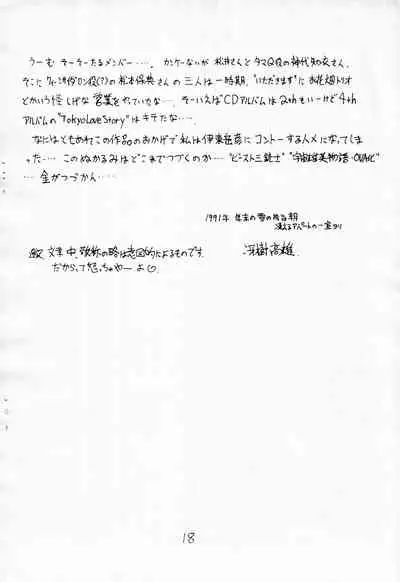 うーむ そーそーたるメンバー‥‥。カンケーないが 松井さんとタマQ役の神代知衣さん、
そこに 役(?)の松本保典さんの三人は一時期、"いただきます" お花畑トリオ
とかいう怪しげな営業をやっていたな…。そーいえばCDアルバムは2ndもいーけど4th
アルバムの"Tokyo Love Story"はキテたな…。
なにはともあれこの作品のおかげで私は伊東岳彦にコントーする人メになってしま
った…。このぬかるみはどこまでつづくのか…"ビースト三銃士" "宇宙英雄物語・OVA化"
… 金がつづかん…。
1991年 年末の雪の夜る朝
凍えるアパートの一室より
冴樹高雄.
文章中、敬称の略は意図的によるものです。
だからって怒っちゃやーよ♡.
18